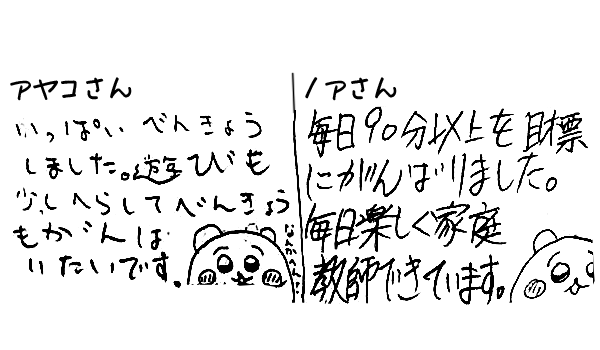 アヤコさん
いっぱい べんきょう
しました。遊びも
少しへらしてべんきょう
もがんば
りたいです。
なんかへん…
ノアさん
毎日90分以上を目標
にがんばりました。
毎日楽しく家庭
教師できています。